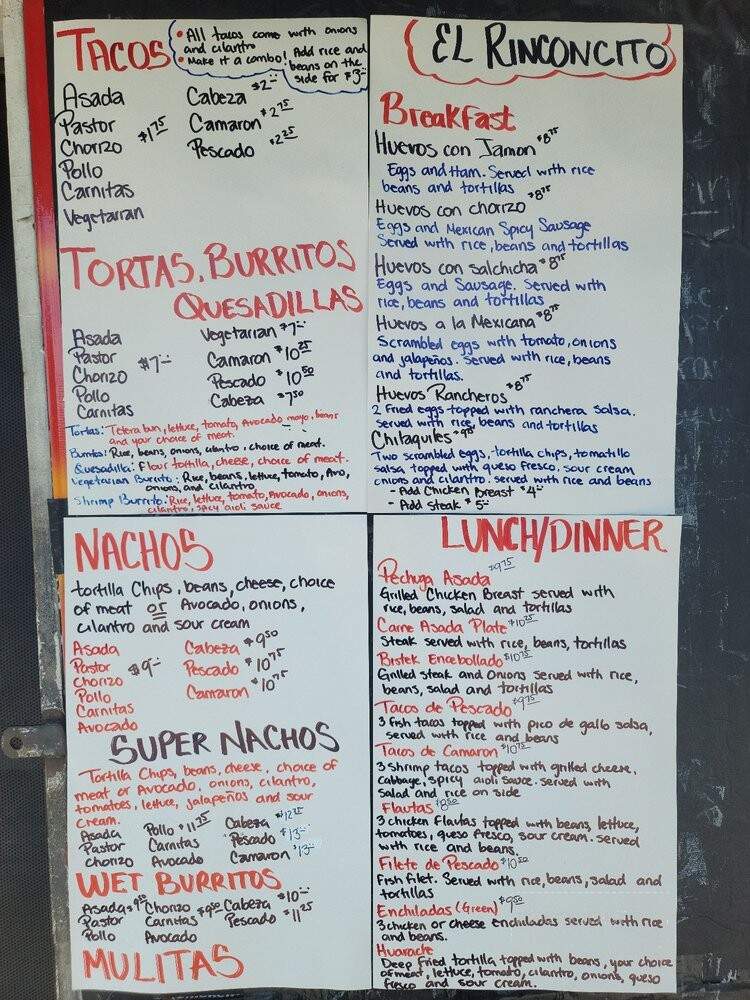 TACOS
• All tacos come with onions
and cilantro
• Make it a combo! Add rice and
beans on the
side for $3
Asada
Pastor
Chorizo
Pollo
Carnitas
Vegetarian
$1.75
Cabeza $2
Camaron $2.75
Pescado $2.25
TORTAS, BURRITOS
QUESADILLAS
Asada
Pastor
Chorizo
Pollo
Carnitas
$7
Vegetarian $7
Camaron $10.25
Pescado $10.50
Cabeza $7.50
Tortas: Telera bun, lettuce, tomato, Avocado mayo, beans
and your choice of meat.
Burritos: Rice, beans, onions, cilantro, choice of meat.
Quesadilla: Flour tortilla, cheese, choice of meat.
Vegetarian Burrito: Rice, beans, lettuce, tomato, Avo,
onions, and cilantro
Shrimp Burrito: Rice, lettuce, tomato, Avocado, onions,
cilantro, spicy aioli sauce
NACHOS
tortilla Chips, beans, cheese, choice
of meat or Avocado, onions,
cilantro and sour cream
Asada
Pastor
Chorizo
Pollo
Carnitas
Avocado
$9
Cabeza $9.50
Pescado $10.75
Camaron $10.75
SUPER NACHOS
Tortilla Chips, beans, cheese, choice of
meat or Avocado, onions, cilantro,
tomatoes, lettuce, jalapeños and sour
cream.
Asada
Pastor
Chorizo
Pollo $11.25
Carnitas
Avocado
Cabeza
Pescado $13
Camaron $13
WET BURRITOS
Asada $9.50
Pastor
Pollo
Chorizo $9.50
Carnitas
Avocado
Cabeza $10
Pescado $11.25
MULITAS
EL RINCONCITO
Breakfast
Huevos con Jamon $8.75
Eggs and Ham. Served with rice
beans and tortillas
Huevos con chorizo $8.75
Eggs and Mexican Spicy Sausage
Served with rice, beans and tortillas
Huevos con salchicha $8.75
Eggs and Sausage. Served with
rice, beans and tortillas
Huevos a la Mexicana $8.75
Scrambled eggs with tomato, onions
and jalapeños. Served with rice, beans
and tortillas.
Huevos Rancheros $8.75
2 Fried eggs topped with ranchera salsa.
served with rice, beans and tortillas
Chilaquiles
Two scrambled eggs, tortilla chips, tomatillo
salsa topped with queso fresco, sour cream
onions and cilantro. served with rice and beans
- Add Chicken Breast $4
- Add steak $5
LUNCH/DINNER
Pechuga Asada $9.75
Grilled Chicken Breast served with
rice, beans, salad and tortillas
Carne Asada Plate $10.25
Steak served with rice, beans, tortillas
Bistek Encebollado $10.75
Grilled steak and Onions served with rice,
beans, salad and tortillas
Tacos de Pescado $9.75
3 fish tacos topped with pico de gallo salsa,
served with rice and beans
Tacos de Camaron $10.75
3 shrimp tacos topped with grilled cheese,
cabbage, spicy aioli sauce. served with
Salad and rice on side
Flautas $8.50
3 chicken flautas topped with beans, lettuce,
tomatoes, queso fresco, sour cream. served
with rice and beans.
Filete de Pescado $10.50
Fish filet. Served with rice, beans, salad and
tortillas
Enchiladas (Green) $9.50
3 chicken or cheese enchiladas served with rice
and beans.
Huarache
Deep fried tortilla topped with beans, your choice
of meat, lettuce, tomato, cilantro, onions, queso
fresco and sour cream.